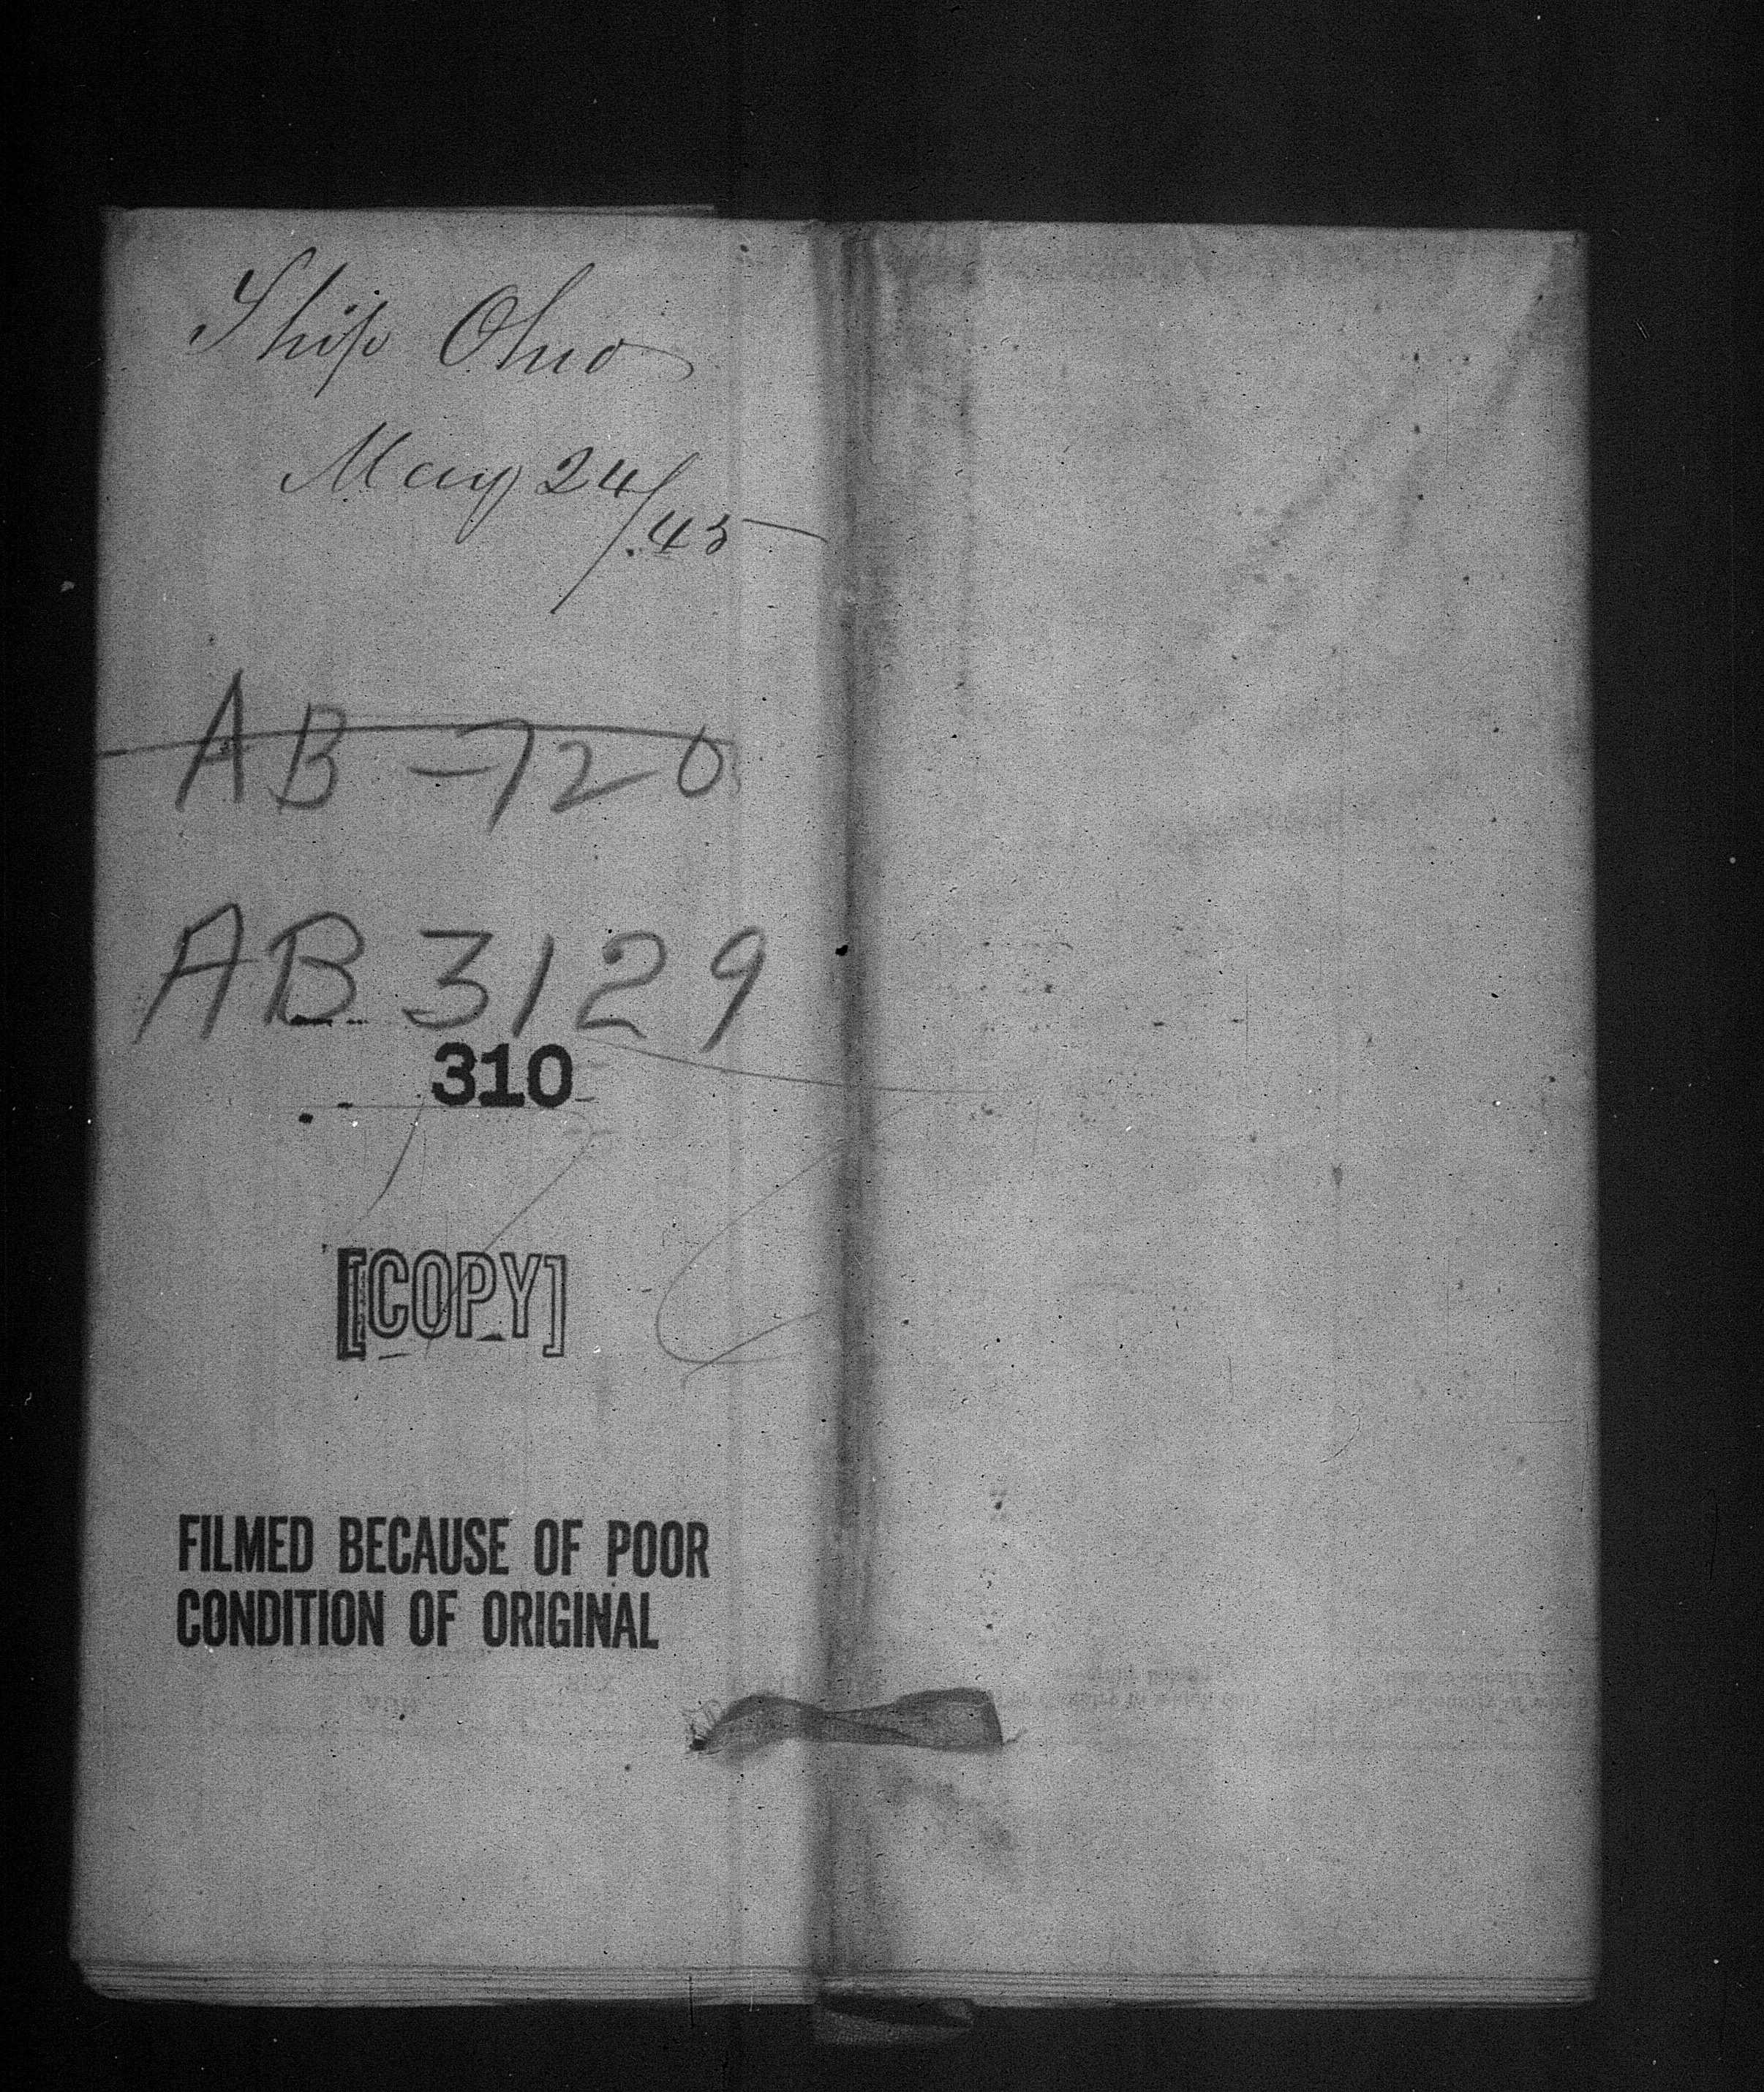 Ship Ohio
May 24/.45
AB-720
AB 3129
310
[COPY]
FILMED BECAUSE OF POOR
CONDITION OF ORIGINAL